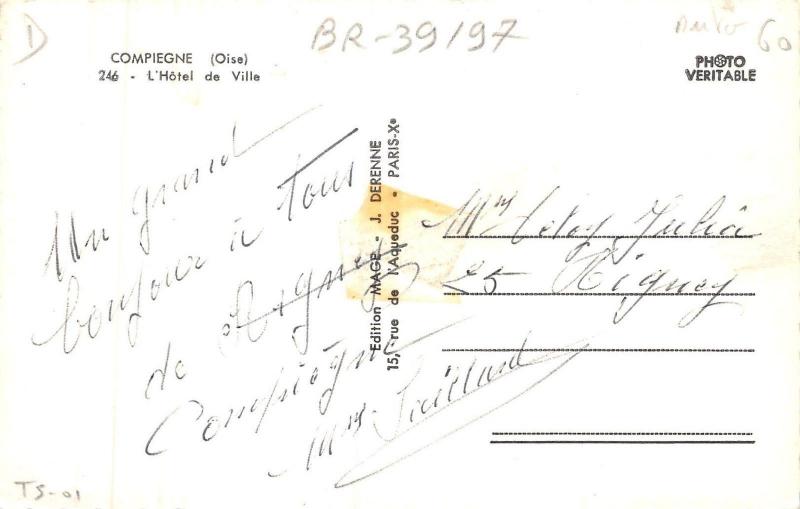 D
BR-39/97
Auto 60
COMPIEGNE (Oise)
246 - L'Hôtel de Ville
PHOTO
VERITABLE
Un grand
bonjour à tous
de Rigney
Compiègne
Mme Gaillard
Edition MAGE - J. DERENNE
15, rue de l'Aqueduc • PARIS-Xe
Mme Julia
25 Rigney
TS-01